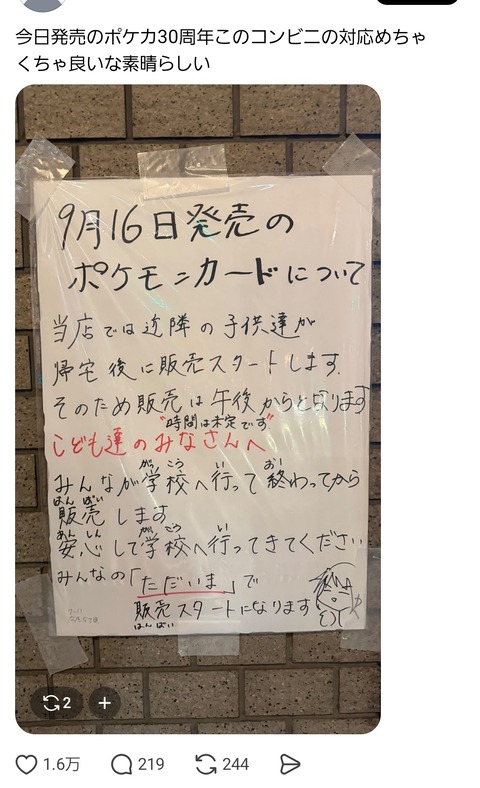 今日発売のポケカ30周年このコンビニの対応めちゃ
くちゃ良いな素晴らしい
9月16日発売の
ポケモンカードについて
当店では近隣の子供達が
帰宅後に販売スタートします。
そのため販売は午後からとなります
"時間は未定です"
こども達のみなさんへ
がっこう い お
みんなが学校へ行って終わってから
はんばい
販売します
あんしん がっこう い
安心して学校へ行ってきてください
みんなの「ただいま」で
販売スタートになります
はんばい
2
1.6万 219 244